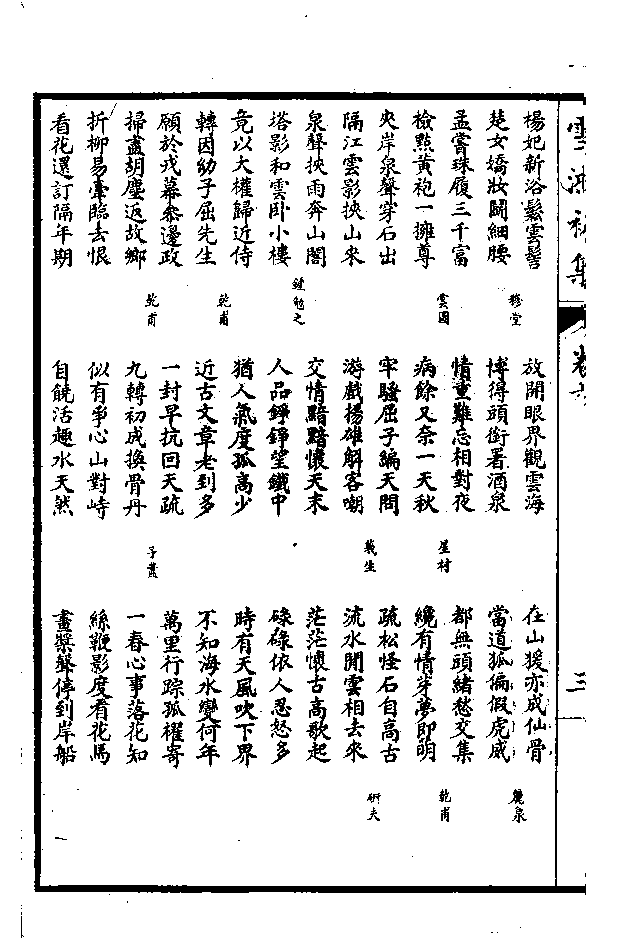 楊妃新浴鬆雲髻 放開眼界觀雲海 在山猨亦成仙骨
楚女嬌妝鬪細腰 穆堂 博得頭銜署酒泉 當道狐偏假虎威 麓泉
孟嘗珠履三千富 情重難忘相對夜 都無頭緒愁交集
檢點黃袍一擁尊 雲圃 病餘又奈一天秋 星村 纔有情芽夢即萌 乾甫
夾岸泉聲穿石出 牢騷屈子編天問 疏松怪石自高古
隔江雲影挾山來 游戲揚雄解客嘲 羲生 流水閒雲相去來 研夫
泉聲挾雨奔山閣 交情黯黯懷天末 茫茫懷古高歌起
塔影和雲卧小樓 鍾勉之 人品錚錚望鐵中 碌碌依人忍怒多
竟以大權歸近侍 猶人氣度孤高少 時有天風吹下界
轉因幼子屈先生 乾甫 近古文章老到多 不知海水變何年
願於戎幕叅邊政 一封早抗回天疏 萬里行踪孤櫂寄
掃盡胡塵返故鄉 乾甫 九轉初成換骨丹 子薰 一春心事落花知
折柳易牽臨去恨 似有爭心山對峙 絲鞭影度看花馬
看花還訂隔年期 自饒活趣水天然 畫槳聲停到岸船
雪鴻初集 卷六 三